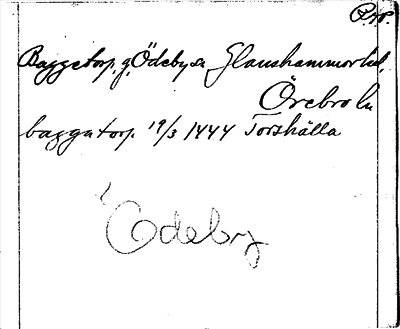 Baggetorp, g, Ödeby sn Glanshammars hd,
Örebro ln
baggatorp. 19/3 1444 Torshälla
Ödeby